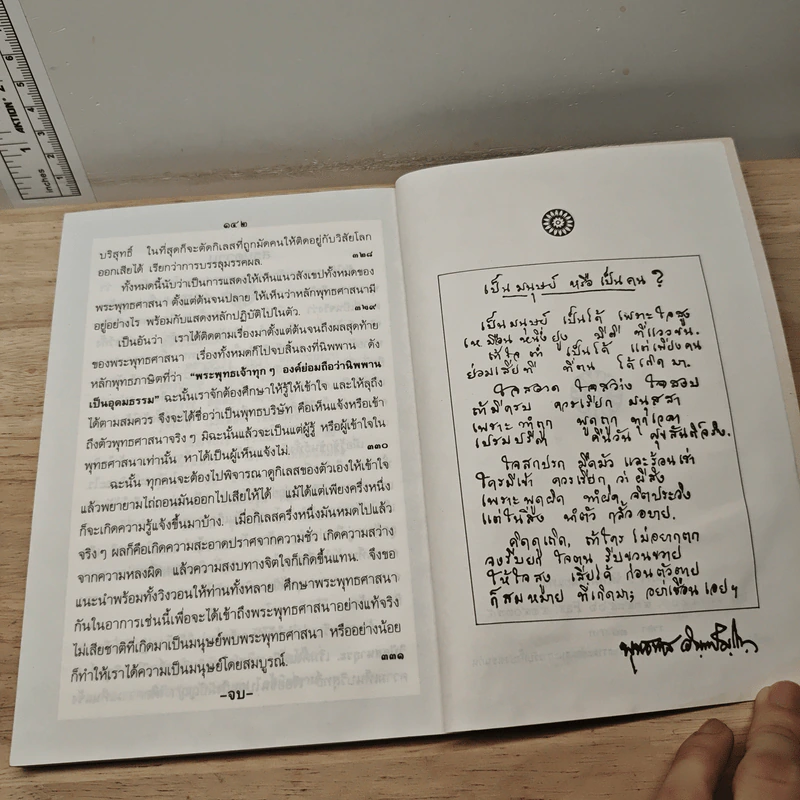 ๑๔๒
บริสุทธิ์ ในที่สุดก็จะตัดกิเลสที่ผูกมัดคนให้ติดอยู่กับวิสัยโลก
ออกเสียได้ เรียกว่าการบรรลุมรรคผล.
๓๒๘
ทั้งหมดนี้นับว่าเป็นการแสดงให้เห็นแนวสังเขปทั้งหมดของ
พระพุทธศาสนา ตั้งแต่ต้นจนปลาย ให้เห็นว่าหลักพุทธศาสนามี
อยู่อย่างไร พร้อมกับแสดงหลักปฏิบัติไปในตัว.
๓๒๙
เป็นอันว่า เราได้ติดตามเรื่องมาตั้งแต่ต้นจนถึงผลสุดท้าย
ของพระพุทธศาสนา เรื่องทั้งหมดก็ไปจบสิ้นลงที่นิพพาน ดัง
หลักพุทธภาษิตที่ว่า "พระพุทธเจ้าทุกๆ องค์ย่อมถือว่านิพพาน
เป็นอุดมธรรม" ฉะนั้นเราจักต้องศึกษาให้รู้ให้เข้าใจ และให้ลุถึง
ได้ตามสมควร จึงจะได้ชื่อว่าเป็นพุทธบริษัท คือเห็นแจ้งหรือเข้า
ถึงตัวพุทธศาสนาจริงๆ มิฉะนั้นแล้วจะเป็นแต่ผู้รู้ หรือผู้เข้าใจใน
พุทธศาสนาเท่านั้น หาได้เป็นผู้เห็นแจ้งไม่.
๓๓๐
ฉะนั้น ทุกคนจะต้องไปพิจารณาดูกิเลสของตัวเองให้เข้าใจ
แล้วพยายามไถ่ถอนมันออกไปเสียให้ได้ แม้ได้แต่เพียงครึ่งหนึ่ง
ก็จะเกิดความรู้แจ้งขึ้นมาบ้าง. เมื่อกิเลสครึ่งหนึ่งมันหมดไปแล้ว
จริงๆ ผลก็คือเกิดความสะอาดปราศจากความชั่ว เกิดความสว่าง
จากความหลงผิด แล้วความสงบทางจิตใจก็เกิดขึ้นแทน. จึงขอ
แนะนำพร้อมทั้งวิงวอนให้ท่านทั้งหลาย ศึกษาพระพุทธศาสนา
กันในอาการเช่นนี้เพื่อจะได้เข้าถึงพระพุทธศาสนาอย่างแท้จริง
ไม่เสียชาติที่เกิดมาเป็นมนุษย์พบพระพุทธศาสนา หรืออย่างน้อย
ก็ทำให้เราได้ความเป็นมนุษย์โดยสมบูรณ์.
๓๓๑
–จบ–
เป็นมนุษย์ หรือ เป็นคน ?
เป็นมนุษย์ เป็นได้ เพราะใจสูง
เหมือนหนึ่งยูง มีดี ที่แววขน.
ถ้าใจต่ำ เป็นได้ แต่เพียงคน
ย่อมเสียที ที่ตน ได้เกิดมา.
ใจสอาด ใจสว่าง ใจสงบ
ถ้ามีครบ ควรเรียก มนุสสา
เพราะทำถูก พูดถูก ทุกเวลา
เปรมปรีดา คืนวัน สุขสันติ์จริง.
ใจสกปรก มืดมัว และร้อนเร่า
ใครมีเข้า ควรเรียก ว่าผีสิง
เพราะพูดผิด ทำผิด จิตประวิง
แต่ในสิ่ง ทำตัว กลั้วอบาย.
คิดดูเถิด, ถ้าใคร ไม่อยากตก
จงรีบยก ใจตน รีบขวนขวาย
ให้ใจสูง เสียได้ ก่อนตัวตาย
ก็สมหมาย ที่เกิดมา; อย่าเชือน เอยฯ
พุทธทาส อินทปัญโญ
AKTION
inches